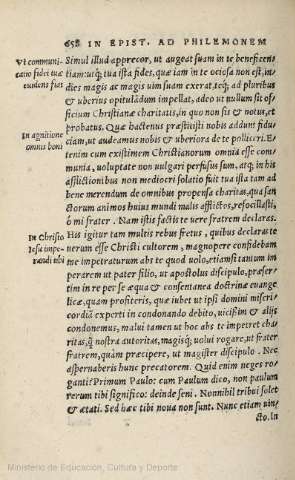 658 IN EPIST. AD PHILEMONEM
Vt communi- Simul illud apprecor, ut augeat suam in te beneficen
catio fidei tuæ tiam: utq; tua ista fides, quæ iam in te ociosa non est, in
euidens fiat dies magis ac magis uim suam exerat, seq; ad pluribus
& uberius opitulādum impellat, adeo ut nullum sit of
ficium Christianæ charitatis, in quo non sis & notus, et
probatus. Quæ hactenus præstitisti nobis addunt fidu
In agnitione ciam, ut audeamus nobis & uberiora de te polliceri. Et
omnis boni enim cum existimem Christianorum omnia esse com
munia, uoluptate non uulgari perfusus sum, atq; in his
afflictionibus non mediocri solatio fuit tua ista tam ad
bene merendum de omnibus propensa charitas, qua san
ctorum animos huius mundi malis afflictos, refocillasti,
ô mi frater. Nam istis factis te uere fratrem declaras.
In Christo His igitur tam multis rebus fretus, quibus declaras te
Iesu impe- uerum esse Christi cultorem, magnopere confidebam
randi tibi me impetraturum abs te quod uolo, etiamsi tantum im
perarem ut pater filio, ut apostolus discipulo, præser-
tim in re per se æqua & consentanea doctrinæ euange
licæ, quam profiteris, quæ iubet ut ipsi domini miseri-
cordiā experti in condonando debito, uicissim & alijs
condonemus, malui tamen ut hoc abs te impetret cha
ritas, q̃ nostra autoritas, magisq; uolui rogare, ut frater
fratrem, quàm præcipere, ut magister discipulo. Nec
aspernaberis hunc precatorem. Quid enim neges ro-
ganti? Primum Paulo: cum Paulum dico, non paulum
rerum tibi significo: deinde seni. Nonnihil tribui solet
& ætati. Sed hæc tibi noua non sunt. Nunc etiam uin-
cto. In
Ministerio de Educación, Cultura y Deporte